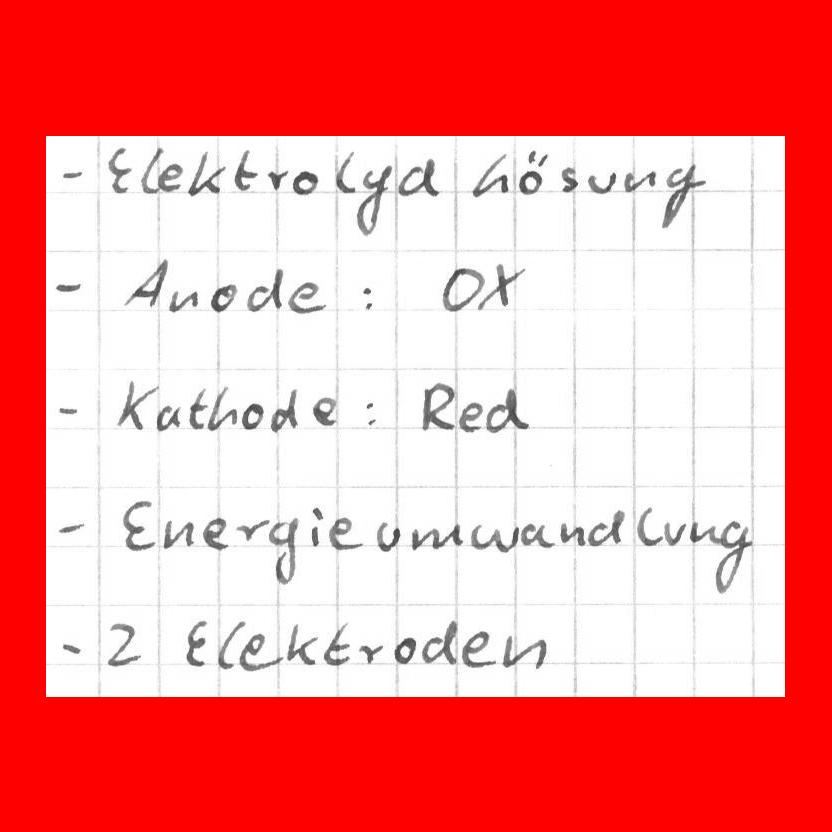 - Elektrolyd lösung
- Anode: OX
- Kathode: Red
- Energieumwandlung
- 2 Elektroden